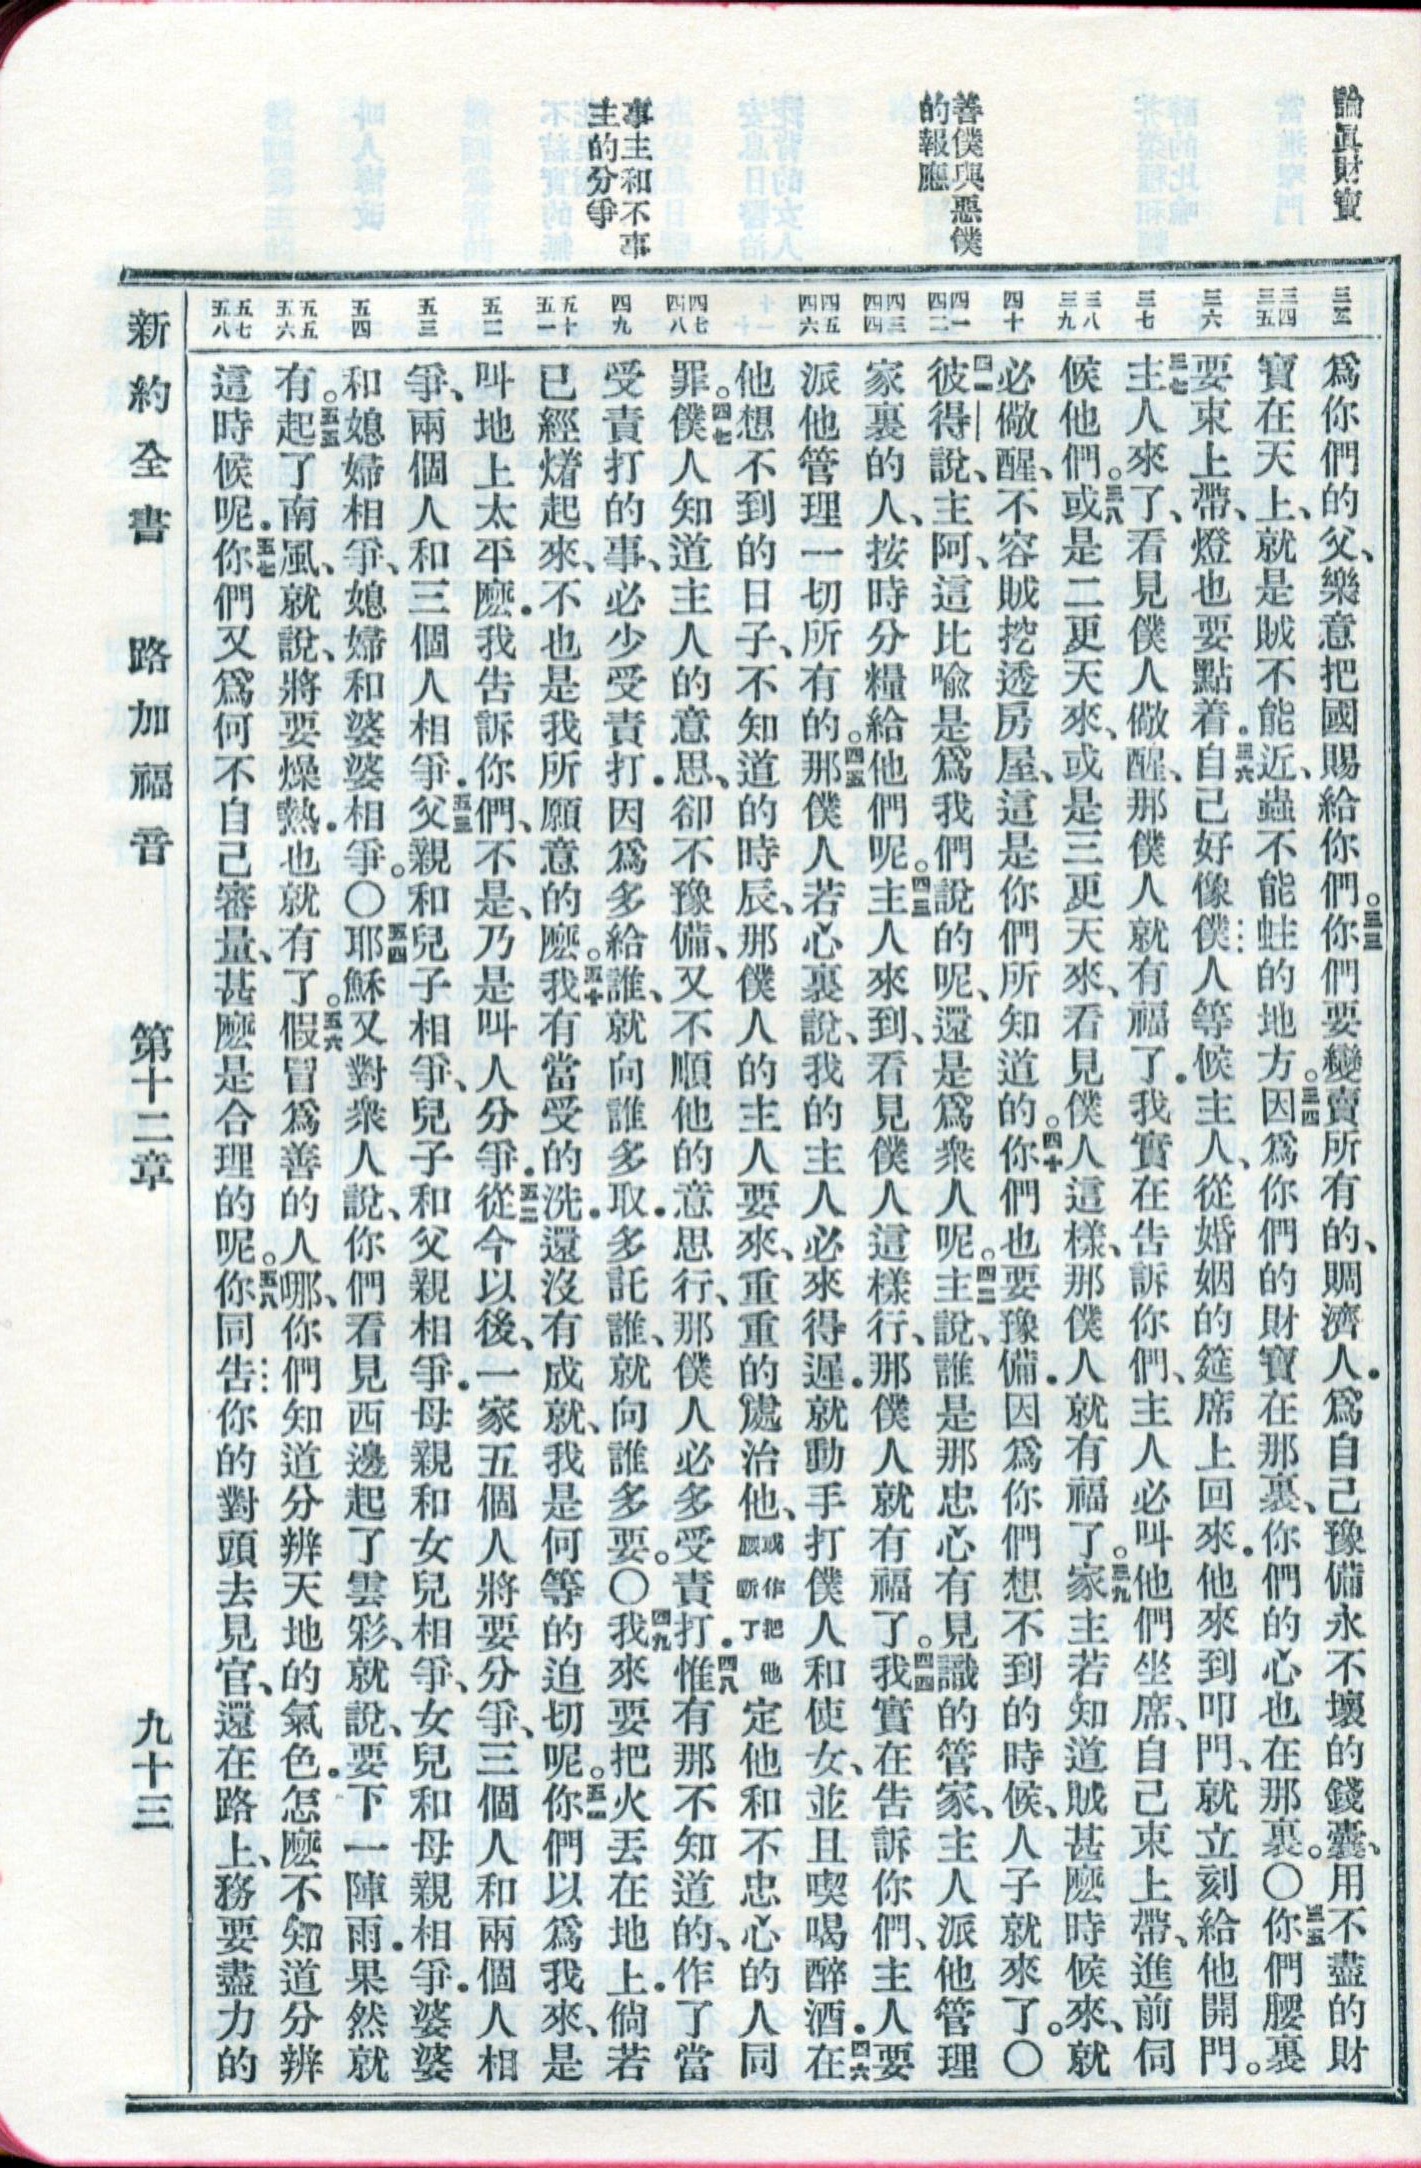 論眞財寶
善僕與惡僕
的報應
事主和不事
主的分爭
三三
三四
三五
三六
三七
三八
三九
四十
四一
四二
四三
四四
四五
四六
四七
四八
四九
五十
五一
五二
五三
五四
五五
五六
五七
五八
爲你們的父、樂意把國賜給你們。三三你們要變賣所有的、賙濟人．爲自己豫備永不壞的錢囊、用不盡的財
寶在天上、就是賊不能近、蟲不能蛀的地方。三四因爲你們的財寶在那裏、你們的心也在那裏。〇三五你們腰裏
要束上帶、燈也要點着．三六自己好像僕人等候主人、從婚姻的筵席上回來．他來到叩門、就立刻給他開門。
三七主人來了、看見僕人儆醒、那僕人就有福了．我實在告訴你們、主人必叫他們坐席、自己束上帶、進前伺
候他們。三八或是二更天來、或是三更天來、看見僕人這樣、那僕人就有福了。三九家主若知道賊甚麽時候來、就
必儆醒、不容賊挖透房屋、這是你們所知道的。四十你們也要豫備．因爲你們想不到的時候、人子就來了。〇
四一彼得說、主阿、這比喩是爲我們說的呢、還是爲衆人呢。四二主說、誰是那忠心有見識的管家、主人派他管理
家裏的人、按時分糧給他們呢。四三主人來到、看見僕人這樣行、那僕人就有福了。四四我實在告訴你們、主人要
派他管理一切所有的。四五那僕人若心裏說、我的主人必來得遲．就動手打僕人和使女、並且喫喝醉酒．四六在
他想不到的日子、不知道的時辰、那僕人的主人要來、重重的處治他、或作把他腰斬了定他和不忠心的人同
罪。四七僕人知道主人的意思、卻不豫備、又不順他的意思行、那僕人必多受責打．四八惟有那不知道的、作了當
受責打的事、必少受責打．因爲多給誰、就向誰多取．多託誰、就向誰多要。〇四九我來要把火丟在地上．倘若
已經熸起來、不也是我所願意的麽。五十我有當受的洗．還沒有成就、我是何等的迫切呢。五一你們以爲我來、是
叫地上太平麽．我告訴你們、不是、乃是叫人分爭．五二從今以後、一家五個人將要分爭、三個人和兩個人相
爭、兩個人和三個人相爭．五三父親和兒子相爭、兒子和父親相爭．母親和女兒相爭、女兒和母親相爭．婆婆
和媳婦相爭、媳婦和婆婆相爭。〇五四耶穌又對衆人說、你們看見西邊起了雲彩、就說、要下一陣雨．果然就
有。五五起了南風、就說、將要燥熱．也就有了。五六假冒爲善的人哪、你們知道分辨天地的氣色．怎麽不知道分辨
這時候呢．五七你們又爲何不自己審量、甚麽是合理的呢。五八你同告你的對頭去見官、還在路上、務要盡力的
新約全書　路加福音　第十二章　九十三